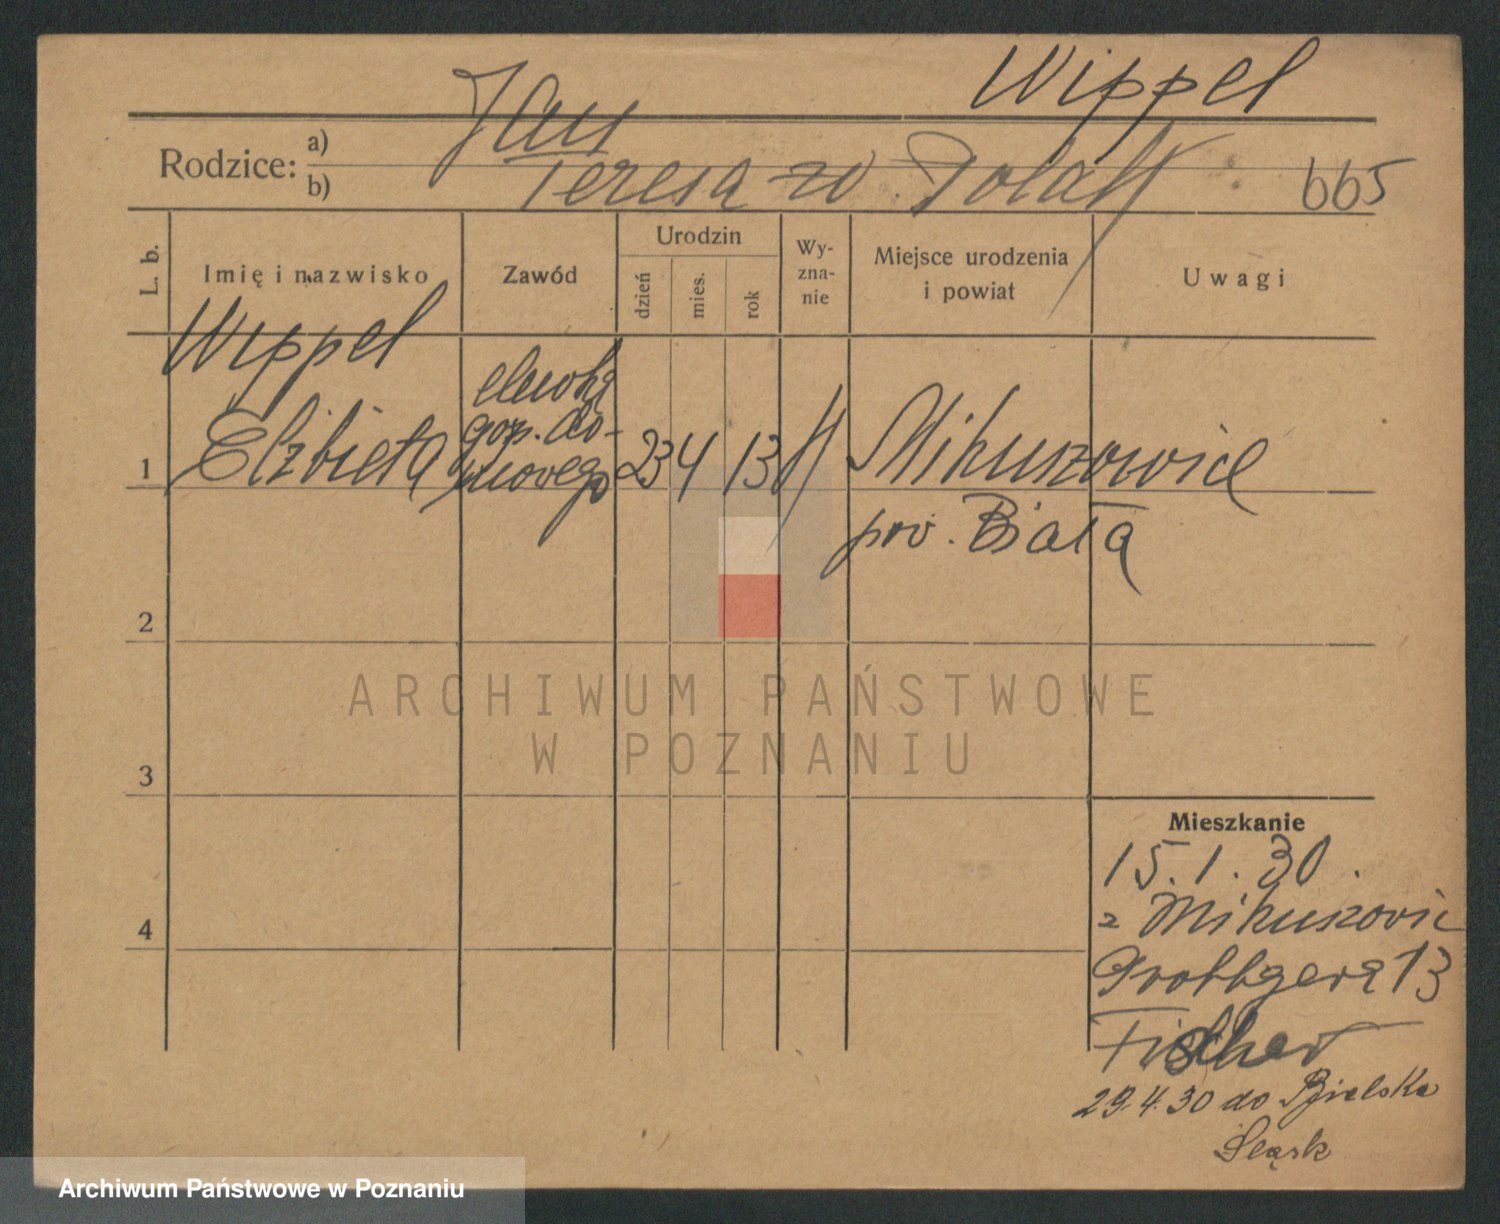 Wippel
Jan
Rodzice: a)
b) Teresa zd. Polak 665
L. b. Imię i nazwisko Zawód Urodzin dzień mies. rok Wy-zna-nie Miejsce urodzenia i powiat Uwagi
Wippel elewka
gosp. do-
1 Elżbieta mowego 23 4 13 Mikuszowice
pow. Biała
2
3
4
Mieszkanie
15.1.30.
z Mikuszowic
Grottgera 13
Fischer
29.4.30 do Bielska
Śląsk
ARCHIWUM PAŃSTWOWE
W POZNANIU
Archiwum Państwowe w Poznaniu